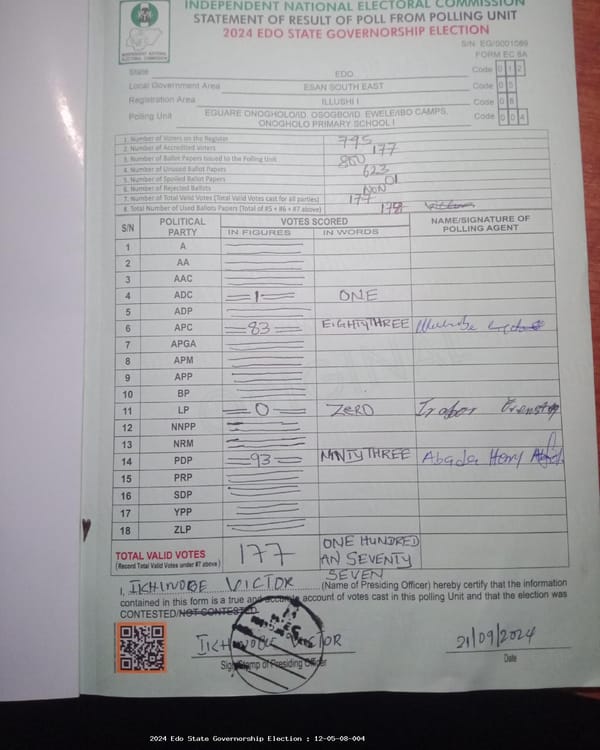 INDEPENDENT NATIONAL ELECTORAL COMMISSION
STATEMENT OF RESULT OF POLL FROM POLLING UNIT
2024 EDO STATE GOVERNORSHIP ELECTION
S/N: EG/0001089
FORM EC 8A
State EDO Code 0 1 2
Local Government Area ESAN SOUTH EAST Code 0 5
Registration Area ILLUSHI I Code 0 8
Polling Unit EGUARE ONOGHOLO/ID. OSOGBO/ID, EWELE/IBO CAMPS, ONOGHOLO PRIMARY SCHOOL I Code 0 0 4
1. Number of Voters on the Register 795
2. Number of Accredited Voters 177
3. Number of Ballot Papers Issued to the Polling Unit 800
4. Number of Unused Ballot Papers 623
5. Number of Spoiled Ballot Papers 01
6. Number of Rejected Ballots NON
7. Number of Total Valid Votes (Total Valid Votes cast for all parties) 177
8. Total Number of Used Ballots Papers (Total of #5 + #6 + #7 above) 178
S/N POLITICAL PARTY VOTES SCORED NAME/SIGNATURE OF POLLING AGENT
IN FIGURES IN WORDS
1 A
2 AA
3 AAC
4 ADC 1 ONE
5 ADP
6 APC 83 EIGHTYTHREE
7 APGA
8 APM
9 APP
10 BP
11 LP 0 ZERO
12 NNPP
13 NRM
14 PDP 93 NINTYTHREE Abada Henry
15 PRP
16 SDP
17 YPP
18 ZLP
TOTAL VALID VOTES 177 ONE HUNDRED AN SEVENTY SEVEN
(Record Total Valid Votes under #7 above)
I, IKHINOBE VICTOR (Name of Presiding Officer) hereby certify that the information
contained in this form is a true and accurate account of votes cast in this polling Unit and that the election was
CONTESTED/NOT CONTESTED.
IKHINOBE VICTOR 21/09/2024
Sign/Stamp of Presiding Officer Date
2024 Edo State Governorship Election : 12-05-08-004